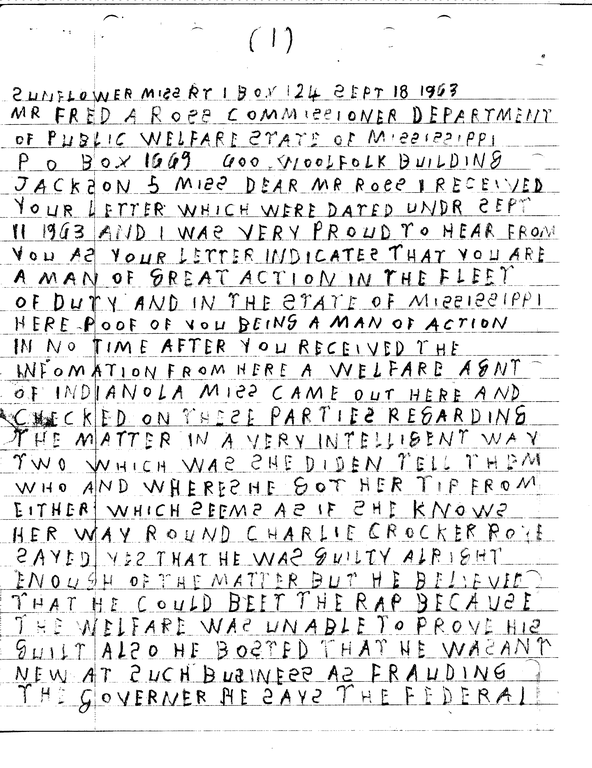 (1)
SUNFLOWER MISS RT 1 BOX 124 SEPT 18 1963
MR FRED A ROSS COMMISSIONER DEPARTMENT
OF PUBLIC WELFARE STATE OF MISSISSIPPI
P O BOX 1669 600 WOOLFOLK BUILDING
JACKSON 5 MISS DEAR MR ROSS I RECEIVED
YOUR LETTER WHICH WERE DATED UNDR SEPT
11 1963 AND I WAS VERY PROUD TO HEAR FROM
YOU AS YOUR LETTER INDICATES THAT YOU ARE
A MAN OF GREAT ACTION IN THE FLEET
OF DUTY AND IN THE STATE OF MISSISSIPPI
HERE POOF OF YOU BEING A MAN OF ACTION
IN NO TIME AFTER YOU RECEIVED THE
INFOMATION FROM HERE A WELFARE AGNT
OF INDIANOLA MISS CAME OUT HERE AND
CHECKED ON THESE PARTIES REGARDING
THE MATTER IN A VERY INTELLIGENT WAY
TWO WHICH WAS SHE DIDEN TELL THEM
WHO AND WHERE SHE GOT HER TIP FROM
EITHER WHICH SEEMS AS IF SHE KNOWS
HER WAY ROUND CHARLIE CROCKER
SAYED YES THAT HE WAS GUILTY ALRIGHT
ENOUGH OF THE MATTER BUT HE BELIEVED
THAT HE COULD BEET THE RAP BECAUSE
THE WELFARE WAS UNABLE TO PROVE HIS
GUILT ALSO HE BOSTED THAT HE WASANT
NEW AT SUCH BUSINESS AS FRAUDING
THE GOVERNER HE SAYS THE FEDERAL